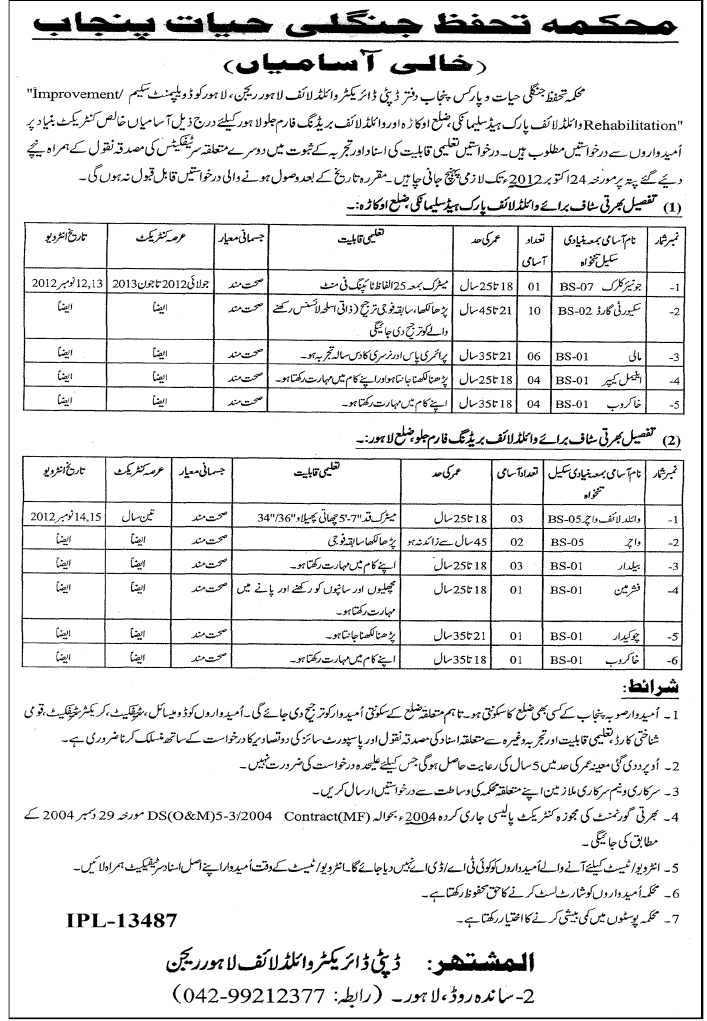 محکمہ تحفظ جنگلی حیات پنجاب
(خالی آسامیاں)
محکمہ تحفظ جنگلی حیات و پارکس پنجاب دفتر ڈپٹی ڈائریکٹر وائلڈ لائف لاہور ریجن، لاہور کو ڈویلپمنٹ سکیم "Improvement/
Rehabilitation" وائلڈ لائف پارک ہیڈ سلیمانکی، ضلع اوکاڑہ اور وائلڈ لائف بریڈنگ فارم جلو لاہور کیلئے درج ذیل آسامیاں خالص کنٹریکٹ بنیاد پر
اُمیدواروں سے درخواستیں مطلوب ہیں۔ درخواستیں تعلیمی قابلیت کی اسناد اور تجربہ کے ثبوت میں دوسرے متعلقہ سرٹیفکیٹس کی مصدقہ نقول کے ہمراہ نیچے
دیئے گئے پتہ پر مورخہ 24 اکتوبر 2012ء تک لازمی پہنچ جانی چاہیں۔ مقررہ تاریخ کے بعد وصول ہونے والی درخواستیں قابل قبول نہ ہوں گی۔
(1) تفصیل بھرتی سٹاف برائے وائلڈ لائف پارک ہیڈ سلیمانکی، ضلع اوکاڑہ:۔
نمبر شمار نام آسامی بمعہ بنیادی سکیل تنخواہ تعداد آسامی عمر کی حد تعلیمی قابلیت جسمانی معیار عرصہ کنٹریکٹ تاریخ انٹرویو
1- جونیئر کلرک BS-07 01 18 تا 25 سال میٹرک بمعہ 25 الفاظ ٹائپنگ فی منٹ صحت مند جولائی 2012 تا جون 2013 12,13 نومبر 2012
2- سکیورٹی گارڈ BS-02 10 21 تا 45 سال پڑھا لکھا، سابقہ فوجی ترجیح (ذاتی اسلحہ لائسنس رکھنے والے کو ترجیح دی جائیگی صحت مند ایضاً ایضاً
3- مالی BS-01 06 21 تا 35 سال پرائمری پاس اور نرسری کا دس سالہ تجربہ ہو۔ صحت مند ایضاً ایضاً
4- اینیمل کیپر BS-01 04 18 تا 25 سال پڑھنا لکھنا جانتا ہو اور اپنے کام میں مہارت رکھتا ہو۔ صحت مند ایضاً ایضاً
5- خاکروب BS-01 04 18 تا 35 سال اپنے کام میں مہارت رکھتا ہو۔ صحت مند ایضاً ایضاً
(2) تفصیل بھرتی سٹاف برائے وائلڈ لائف بریڈنگ فارم جلو، ضلع لاہور:۔
نمبر شمار نام آسامی بمعہ بنیادی سکیل تنخواہ تعداد آسامی عمر کی حد تعلیمی قابلیت جسمانی معیار عرصہ کنٹریکٹ تاریخ انٹرویو
1- وائلڈ لائف واچر BS-05 03 18 تا 25 سال میٹرک قد 5'-7" چھاتی پھیلاؤ 34"/36" صحت مند تین سال 14,15 نومبر 2012
2- واچر BS-05 02 45 سال سے زائد نہ ہو پڑھا لکھا سابقہ فوجی صحت مند ایضاً ایضاً
3- بیلدار BS-01 03 18 تا 25 سال اپنے کام میں مہارت رکھتا ہو۔ صحت مند ایضاً ایضاً
4- فشرمین BS-01 01 18 تا 25 سال مچھلیوں اور سانپوں کو رکھنے اور پالنے میں مہارت رکھتا ہو۔ صحت مند ایضاً ایضاً
5- چوکیدار BS-01 01 21 تا 35 سال پڑھنا لکھنا جانتا ہو۔ صحت مند ایضاً ایضاً
6- خاکروب BS-01 01 18 تا 35 سال اپنے کام میں مہارت رکھتا ہو۔ صحت مند ایضاً ایضاً
شرائط:
1- اُمیدوار صوبہ پنجاب کے کسی بھی ضلع کا سکونتی ہو۔ تاہم متعلقہ ضلع کے سکونتی اُمیدوار کو ترجیح دی جائے گی۔ اُمیدواروں کو ڈومیسائل، سرٹیفکیٹ، کریکٹر سرٹیفکیٹ، قومی
شناختی کارڈ، تعلیمی قابلیت اور تجربہ وغیرہ سے متعلقہ اسناد کی مصدقہ نقول اور پاسپورٹ سائز کی دو تصاویر کا درخواست کے ساتھ منسلک کرنا ضروری ہے۔
2- اُوپر دی گئی معینہ عمر کی حد میں 5 سال کی رعایت حاصل ہوگی جس کیلئے علیحدہ درخواست کی ضرورت نہیں۔
3- سرکاری و نیم سرکاری ملازمین اپنے متعلقہ محکمہ کی وساطت سے درخواستیں ارسال کریں۔
4- بھرتی گورنمنٹ کی مجوزہ کنٹریکٹ پالیسی جاری کردہ 2004ء بحوالہ DS(O&M)5-3/2004 Contract(MF) مورخہ 29 دسمبر 2004 کے
مطابق کی جائیگی۔
5- انٹرویو/ٹیسٹ کیلئے آنے والے اُمیدواروں کو کوئی ٹی اے/ڈی اے نہیں دیا جائے گا۔ انٹرویو/ٹیسٹ کے وقت اُمیدوار اپنے اصل اسناد سرٹیفکیٹ ہمراہ لائیں۔
6- محکمہ اُمیدواروں کو شارٹ لسٹ کرنے کا حق محفوظ رکھتا ہے۔
7- محکمہ پوسٹوں میں کمی بیشی کرنے کا اختیار رکھتا ہے۔
IPL-13487
المشتہر: ڈپٹی ڈائریکٹر وائلڈ لائف لاہور ریجن
2- ساندہ روڈ، لاہور۔ (رابطہ: 042-99212377)